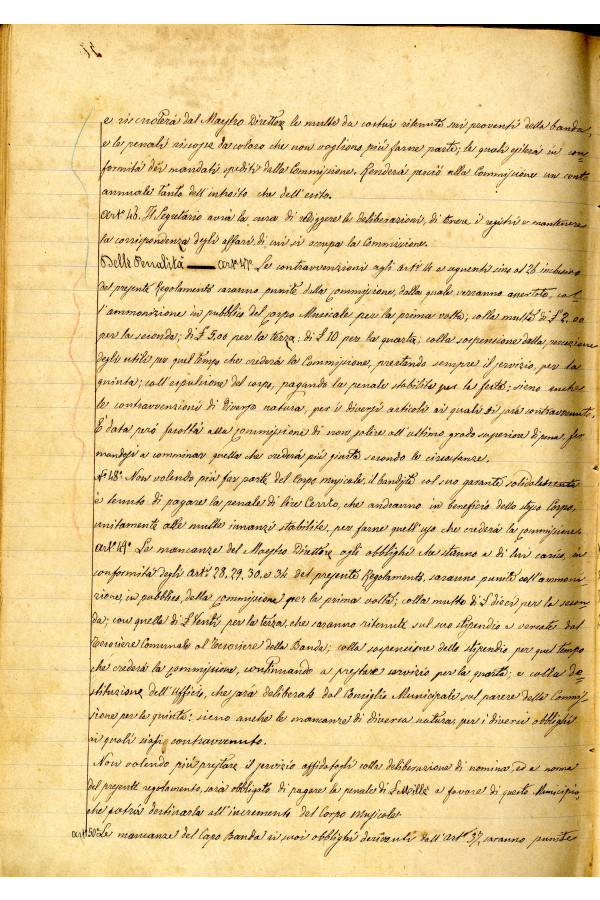 e riscuoterà dal Maestro Direttore le multe da costui ritenute sui proventi della banda,
e le penali riscosse da coloro che non vogliono più farne parte; le quali esiterà in con=
formità dei mandati spediti dalla Commissione. Renderà perciò alla Commissione un conto
annuale tanto dell'introito che dell'esito.
Art.° 46. Il Segretario avrà la cura di redigere le deliberazioni, di tenere i registri e mantenere
la corrispondenza degli affari di cui si occupa la Commissione.
Delle Penalità — Art.° 47.° Le contravvenzioni agli art.i 4 e seguenti sino al 26 inclusivo
del presente Regolamento saranno punite dalla Commissione, dalla quale verranno accertate, col=
l'ammonizione in pubblico del Corpo Musicale per la prima volta; colla multa di £ 2,00
per la seconda; di £ 5,00 per la terza; di £ 10 per la quarta; colla sospensione dalla percezione
degli utili per quel tempo che crederà la Commissione, prestando sempre il servizio, per la
quinta; coll'espulsione dal corpo, pagando la penale stabilita per la sesta; sieno anche
le contravvenzioni di diversa natura, per i diversi articoli ai quali si sarà contravvenuto.
È data però facoltà alla Commissione di non salire all'ultimo grado superiore di pena, fer
mandosi a comminar quella che crederà più giusta secondo le circostanze.
N.° 48.° Non volendo più far parte del Corpo musicale, il bandista col suo garante solidalmente
è tenuto di pagare la penale di lire Cento, che andranno in beneficio dello stesso Corpo,
unitamente alle multe innanzi stabilite, per farne quell'uso che crederà la Commissione.
Art.° 49.° Le mancanze del Maestro Direttore agli obblighi che stanno a di lui carico, in
conformità degli Art.i 28, 29, 30, e 34 del presente Regolamento, saranno punite coll'ammoni
zione, in pubblico, della Commissione per la prima volta; colla multa di £ dieci per la secon
da; con quella di £ Venti, per la terza, che saranno ritenute sul suo stipendio e versate dal
Tesoriere Comunale al Tesoriere della Banda; colla sospensione dello stipendio per quel tempo
che crederà la Commissione, continuando a prestare servizio per la quarta; e colla de=
stituzione dell'Ufficio, che sarà deliberata dal Consiglio Municipale sul parere della Commis
sione per la quinta: sieno anche le mancanze di diversa natura, per i diversi obblighi
ai quali siasi contravvenuto.
Non volendo più prestare il servizio affidatogli colla deliberazione di nomina, ed a norma
del presente regolamento, sarà obbligato di pagare la penale di £ Mille a favore di questo Municipio,
che potrà destinarla all'incremento del Corpo Musicale.
Art.° 50.° Le mancanze del Capo Banda ai suoi obblighi derivanti dall'Art.° 37, saranno punite